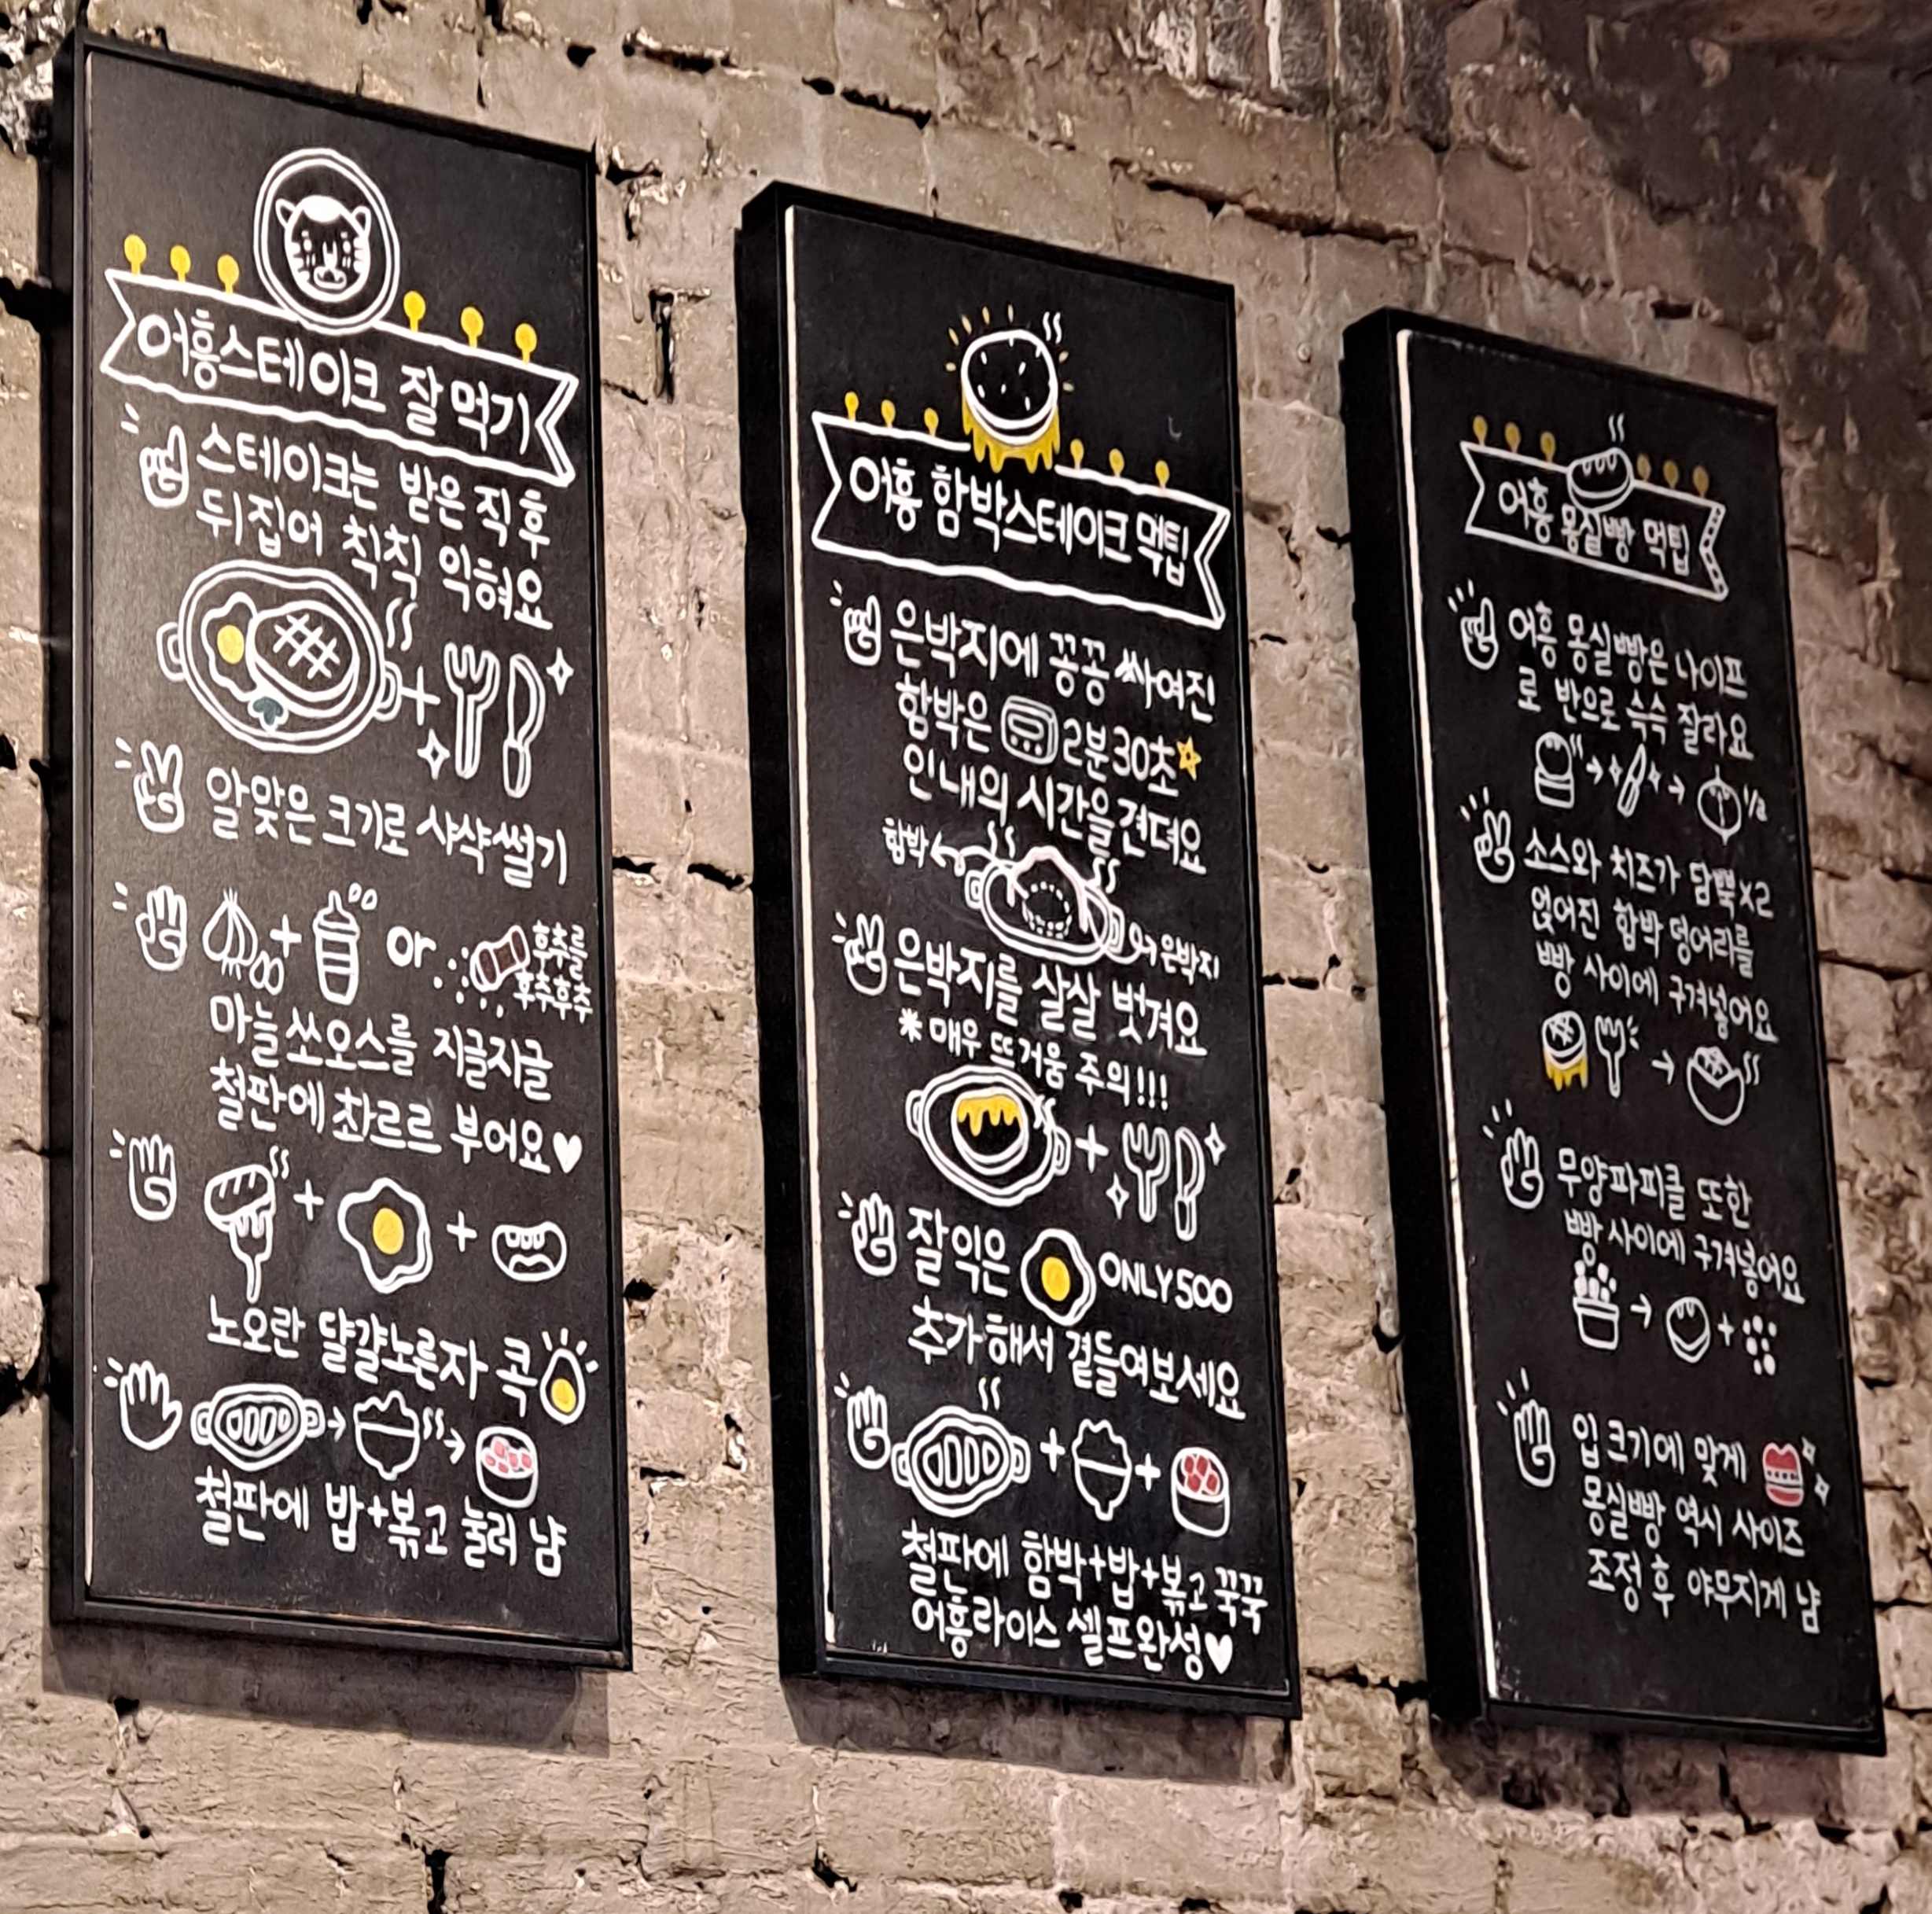 어흥스테이크 잘 먹기
스테이크는 받은 직후
뒤집어 칙칙 익혀요
알맞은 크기로 샤샥썰기
or
후추를
후추후추
마늘쏘오스를 지글지글
철판에 촤르르 부어요♥
노오란 댤걀노른자 콕
철판에 밥+볶고 눌러 냠
어흥 함박스테이크 먹팁
은박지에 꽁꽁 싸여진
함박은 2분30초
인내의 시간을견뎌요
함박
은박지
은박지를 살살 벗겨요
* 매우 뜨거움 주의!!!
잘익은 ONLY500
추가해서 곁들여보세요
철판에 함박+밥+볶고 꾹꾹
어흥라이스 셀프완성♥
어흥 몽실빵 먹팁
어흥 몽실빵은 나이프
로 반으로 슥슥 잘라요
1/2
소스와 치즈가 담뿍x2
얹어진 함박 덩어리를
빵 사이에 구겨넣어요
무양파피클 또한
빵 사이에 구겨넣어요
입 크기에 맞게
몽실빵 역시 사이즈
조정 후 야무지게 냠